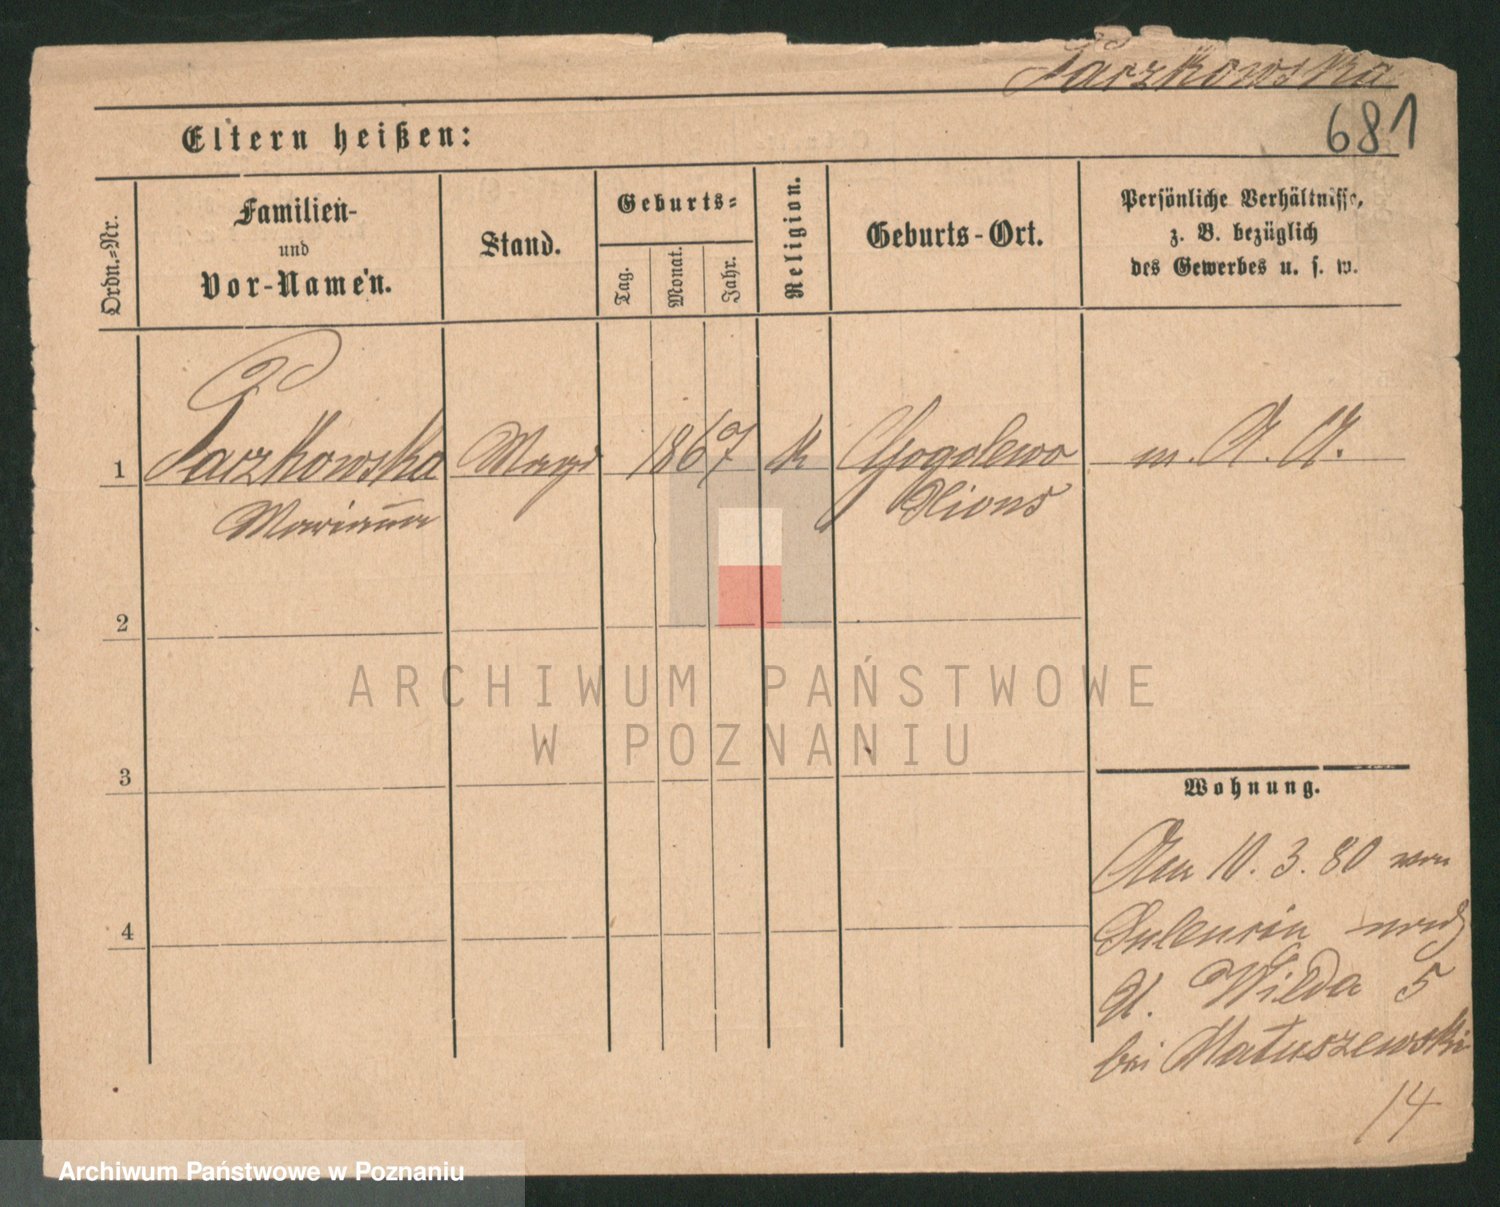 Paczkowska
681
Eltern heißen:
Ordn.-Nr.
Familien-
und
Vor-Namen.
Stand.
Geburts-
Tag.
Monat.
Jahr.
Religion.
Geburts-Ort.
Persönliche Verhältnisse,
z. B. bezüglich
des Gewerbes u. s. w.
1 Paczkowska Magd 1867 K Gogolewo
Marianna Xions
2
3
4
Wohnung.
Am 10. 3. 80 von
nach
Wilda 5
bei Matuszewski
14
ARCHIWUM PAŃSTWOWE
W POZNANIU
Archiwum Państwowe w Poznaniu